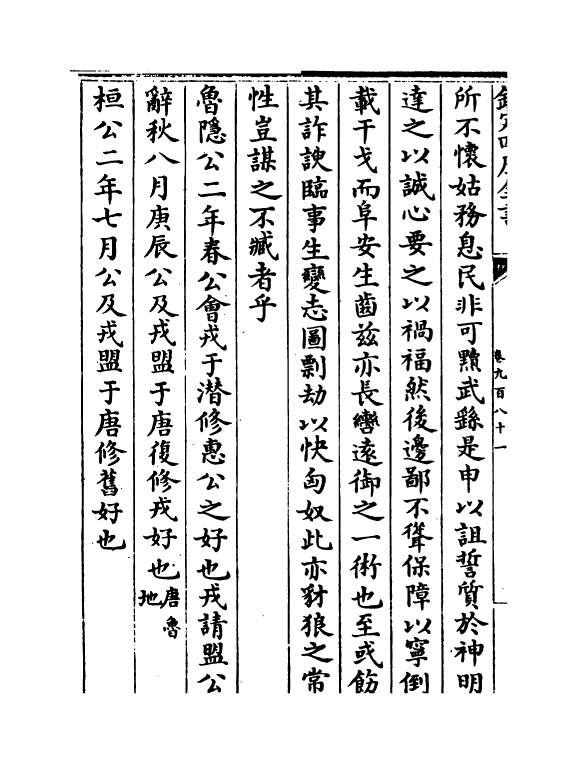 欽定四庫全書
卷九百八十一
所不懷姑務息民非可黷武繇是申以詛誓質於神明
達之以誠心要之以禍福然後邊鄙不聳保障以寧倒
載干戈而阜安生齒兹亦長轡遠御之一術也至或飭
其詐諛臨事生變志圖剽劫以快匈奴此亦豺狼之常
性豈謀之不臧者乎
魯隱公二年春公會戎于潛修惠公之好也戎請盟公
辭秋八月庚辰公及戎盟于唐復修戎好也唐魯地
桓公二年七月公及戎盟于唐修舊好也